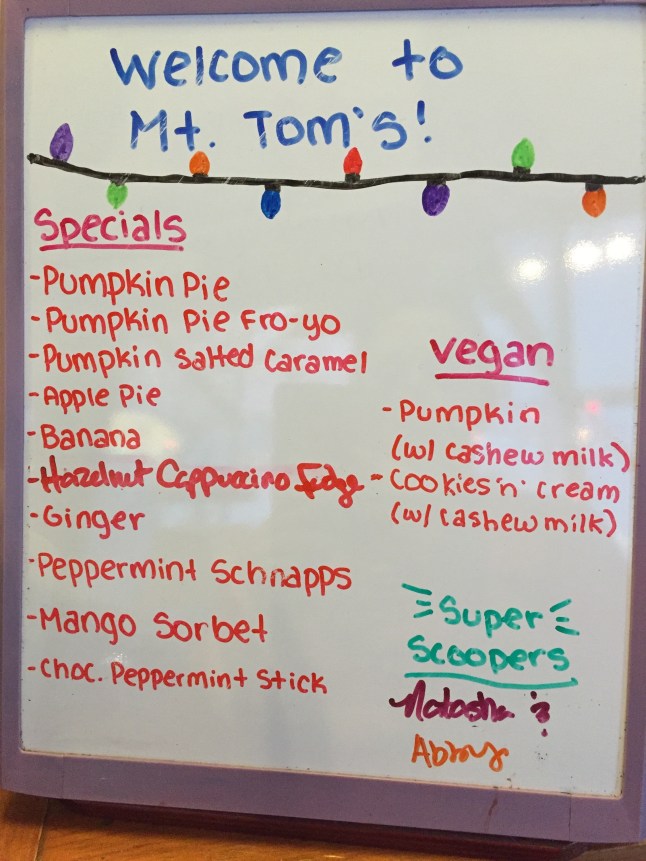 Welcome to
Mt. Tom's!
Specials
-Pumpkin Pie
-Pumpkin Pie Fro-yo
-Pumpkin Salted Caramel
-Apple Pie
-Banana
-Hazelnut Cappuccino Fudge
-Ginger
-Peppermint Schnapps
-Mango Sorbet
-Choc. Peppermint Stick
Vegan
-Pumpkin
(w/ cashew milk)
-Cookies 'n' cream
(w/ cashew milk)
Super
Scoopers
Natasha &
Abby